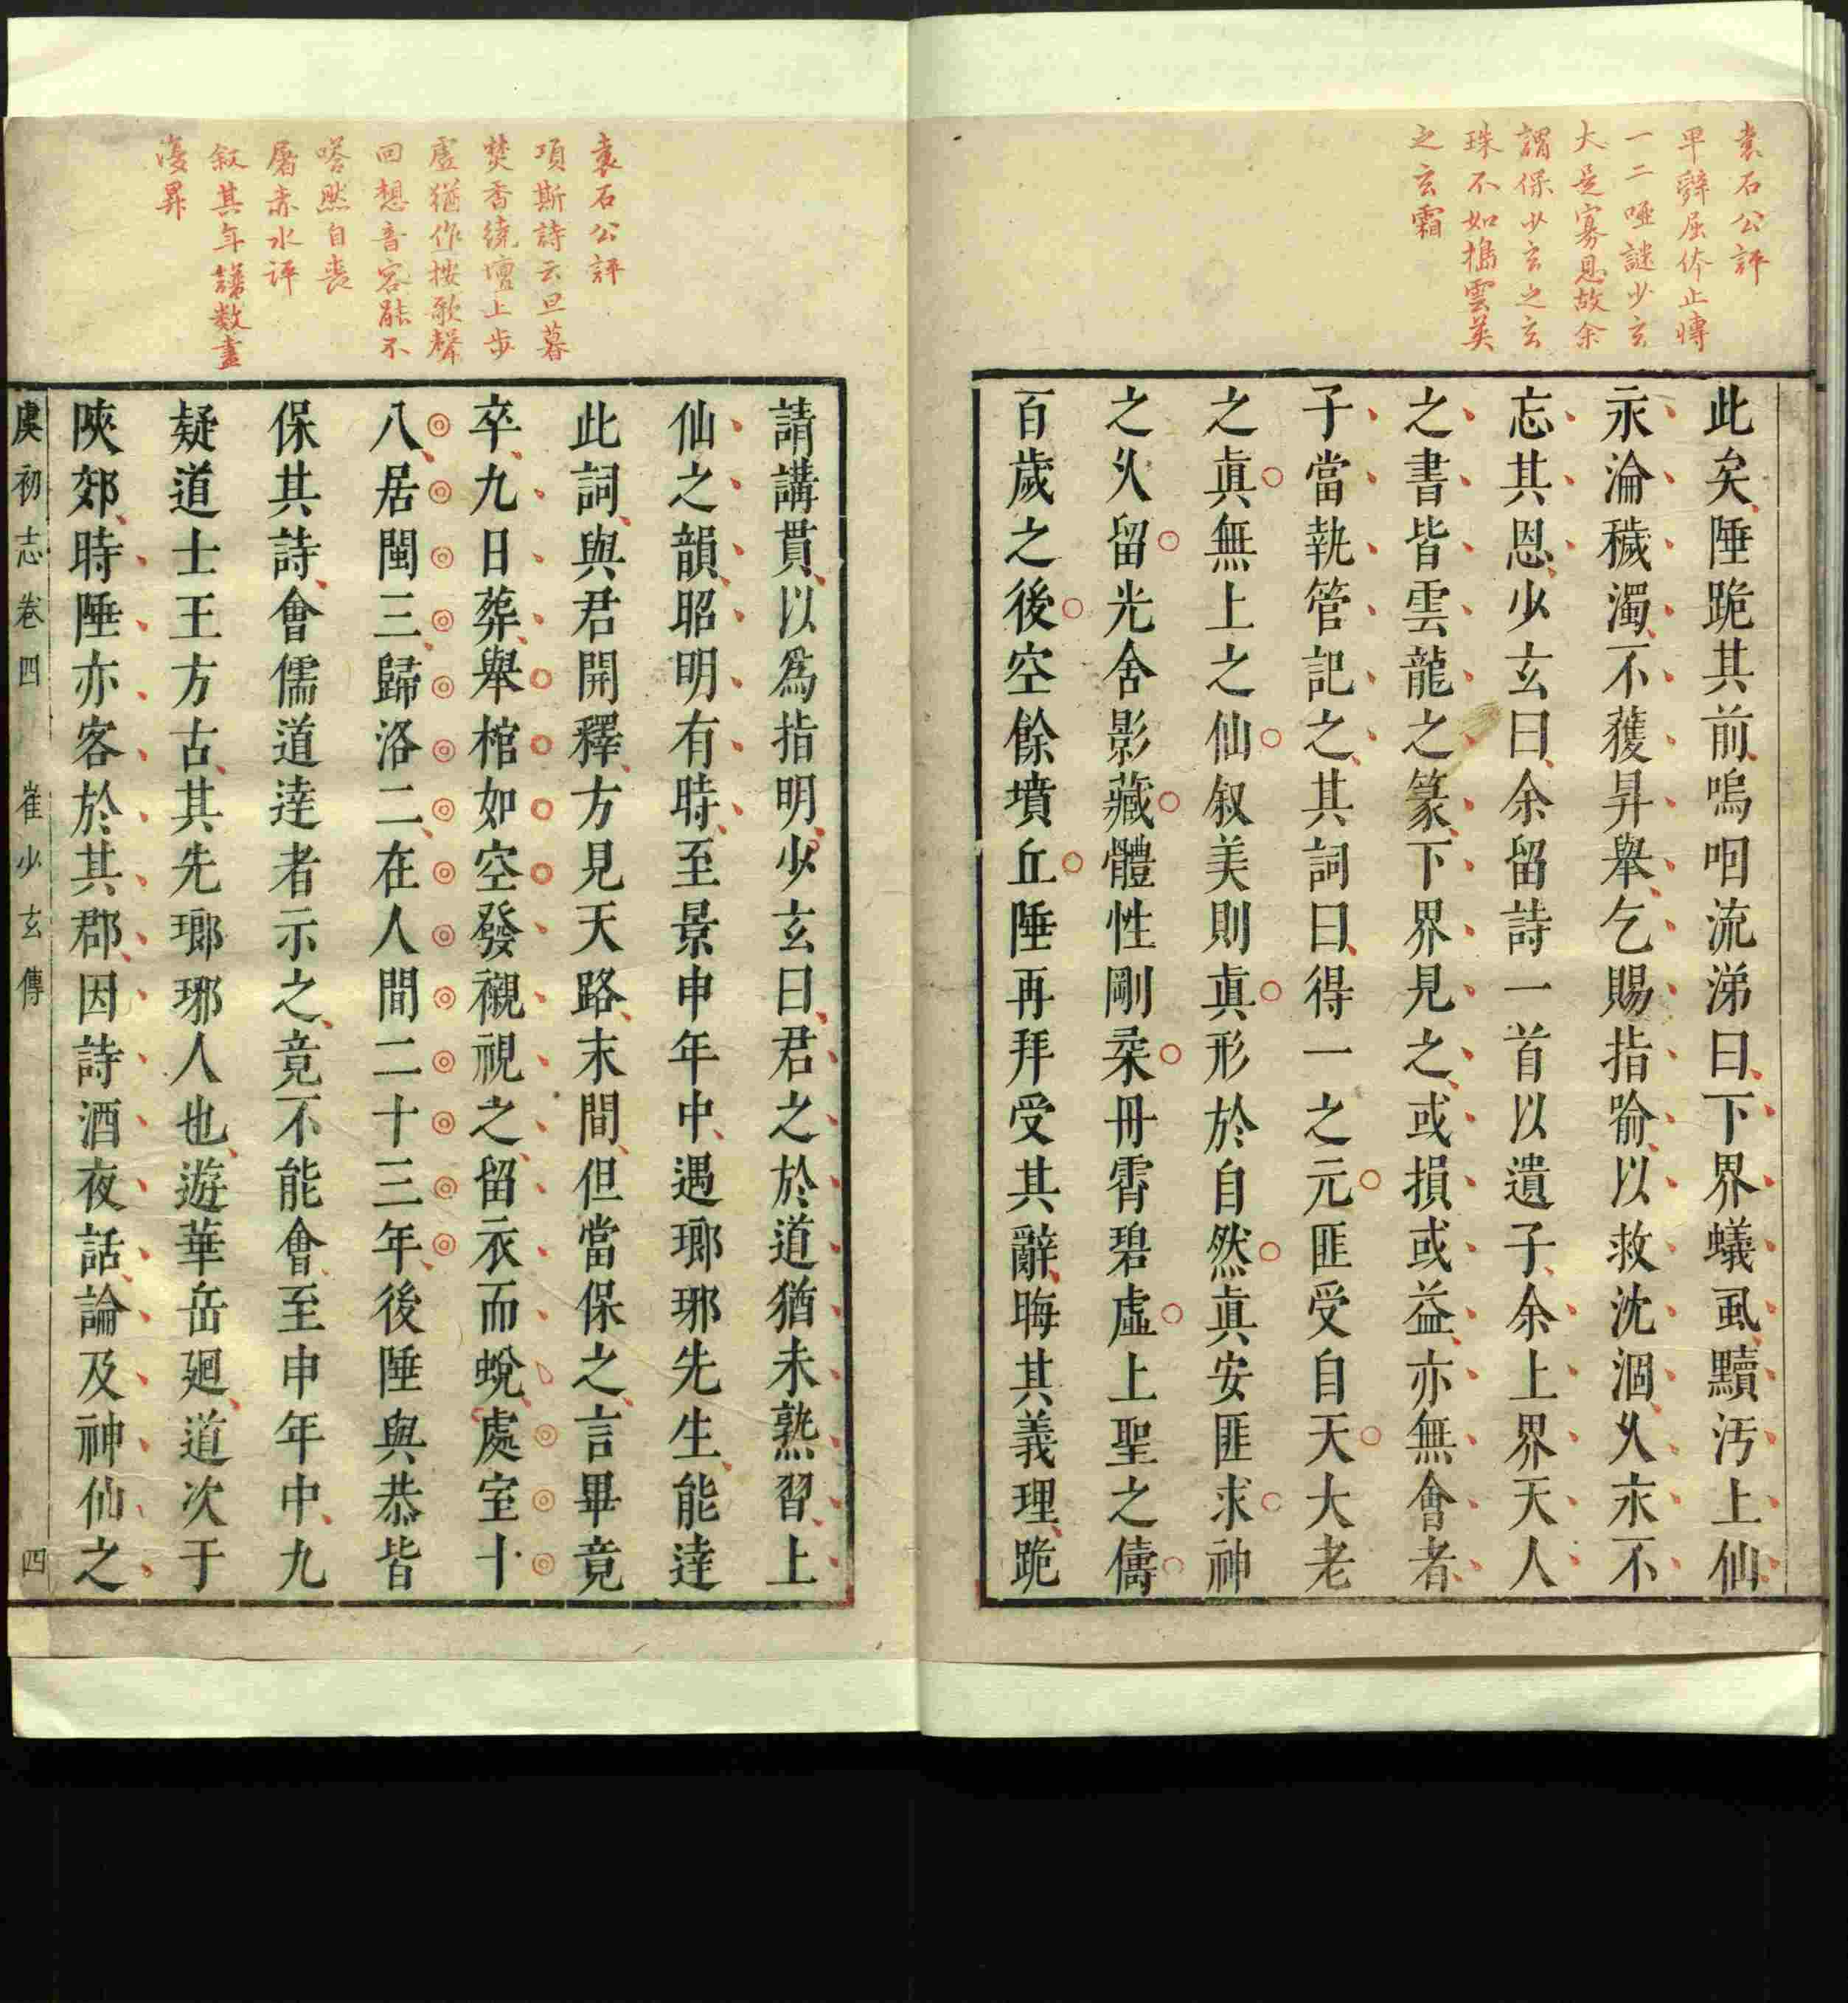 袁石公評
卑辭屈体止博
一二啞謎少玄
大是寡恩故余
謂保少玄之玄
珠不如搗雲英
之玄霜
此矣陲跪其前嗚咽流涕曰下界蟻虱黷汚上仙
永淪穢濁不獲昇舉乞賜指喻以救沈涸久永不
忘其恩少玄曰余留詩一首以遺子余上界天人
之書皆雲龍之篆下界見之或損或益亦無會者
子當執管記之其詞曰得一之元匪受自天大老
之眞無上之仙叙美則眞形於自然眞安匪求神
之久留光舍影藏體性剛柔冊霄碧虛上聖之儔
百歲之後空餘墳丘陲再拜受其辭晦其義理跪
袁石公評
項斯詩云旦暮
焚香繞壇上步
虛猶作按歌聲
回想音容能不
嗒然自喪
屠赤水評
叙其年譜數盡
復昇
請講貫以爲指明少玄曰君之於道猶未熟習上
仙之韻昭明有時至景申年中遇瑯琊先生能達
此詞與君開釋方見天路末間但當保之言畢竟
卒九日葬舉棺如空發襯視之留衣而蛻處室十
八居閩三歸洛二在人間二十三年後陲與恭皆
保其詩會儒道達者示之竟不能會至申年中九
疑道士王方古其先瑯琊人也遊華岳廻道次于
陝郊時陲亦客於其郡因詩酒夜話論及神仙之
虞初志卷四 崔少玄傳 四